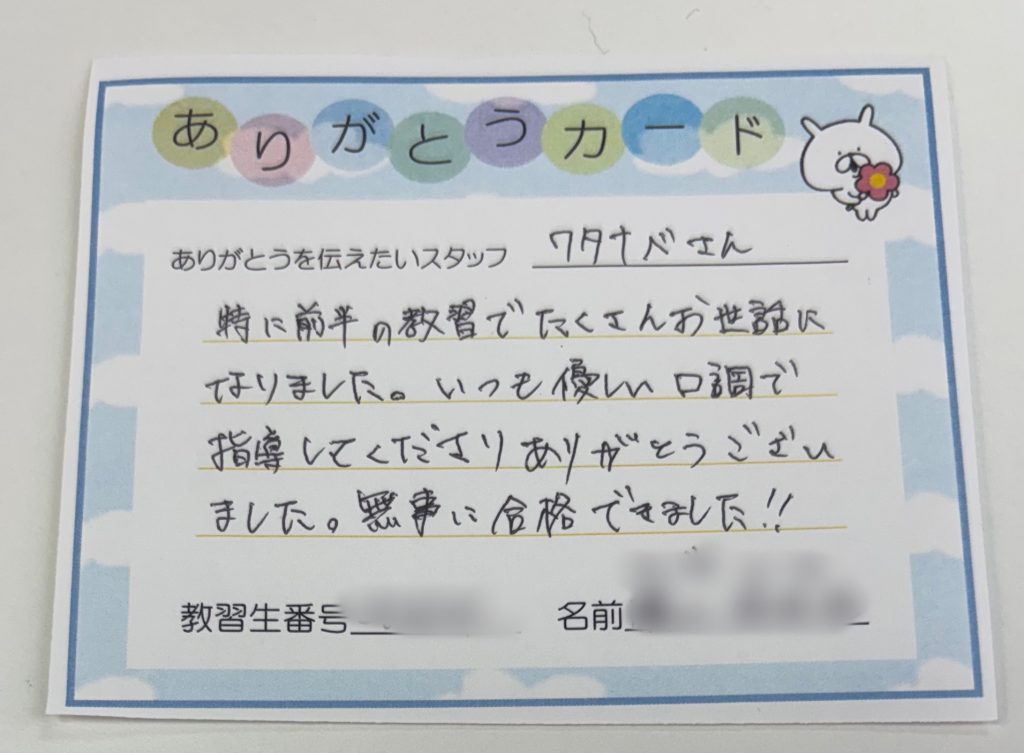 ありがとうカード
ありがとうを伝えたいスタッフ ワタナベさん
特に前半の教習でたくさんお世話に
なりました。いつも優しい口調で
指導してくださりありがとうござい
ました。無事に合格できました!!
教習生番号 名前